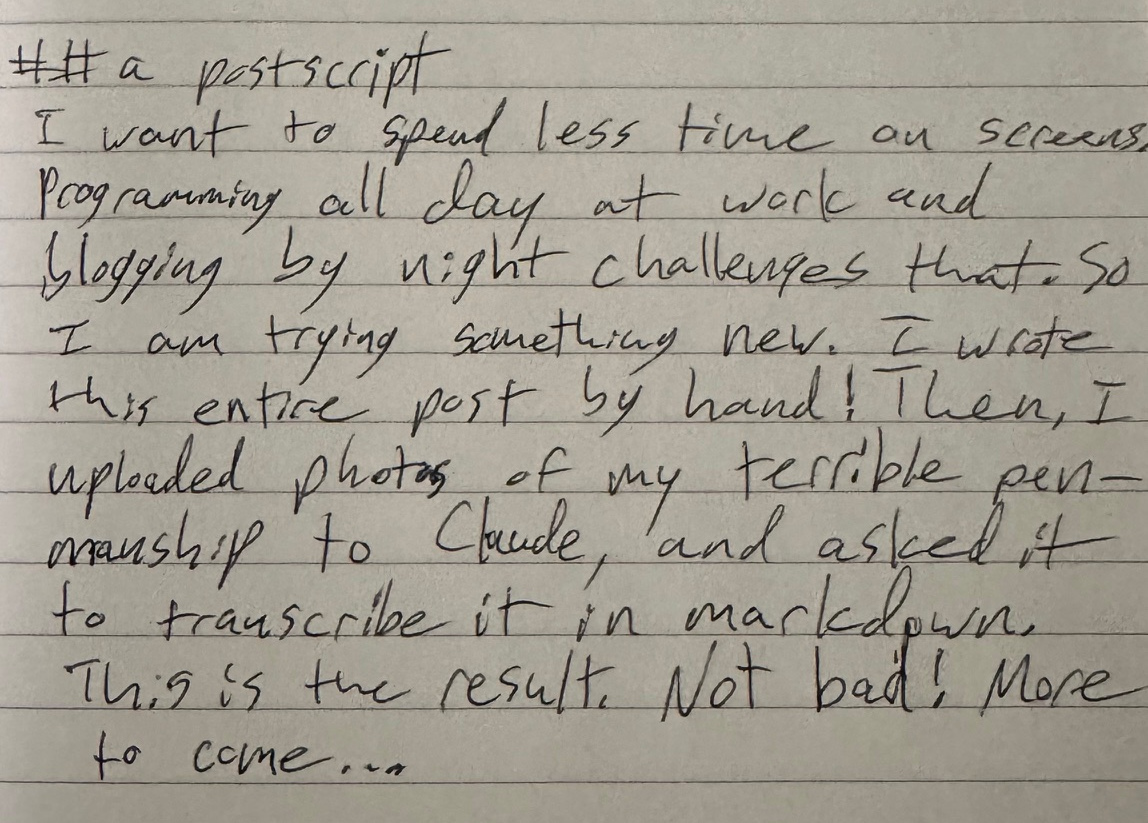 ## a postscript
I want to spend less time on screens.
Programming all day at work and
blogging by night challenges that. So
I am trying something new. I wrote
this entire post by hand! Then, I
uploaded photos of my terrible pen-
manship to Claude, and asked it
to transcribe it in markdown.
This is the result. Not bad! More
to come...